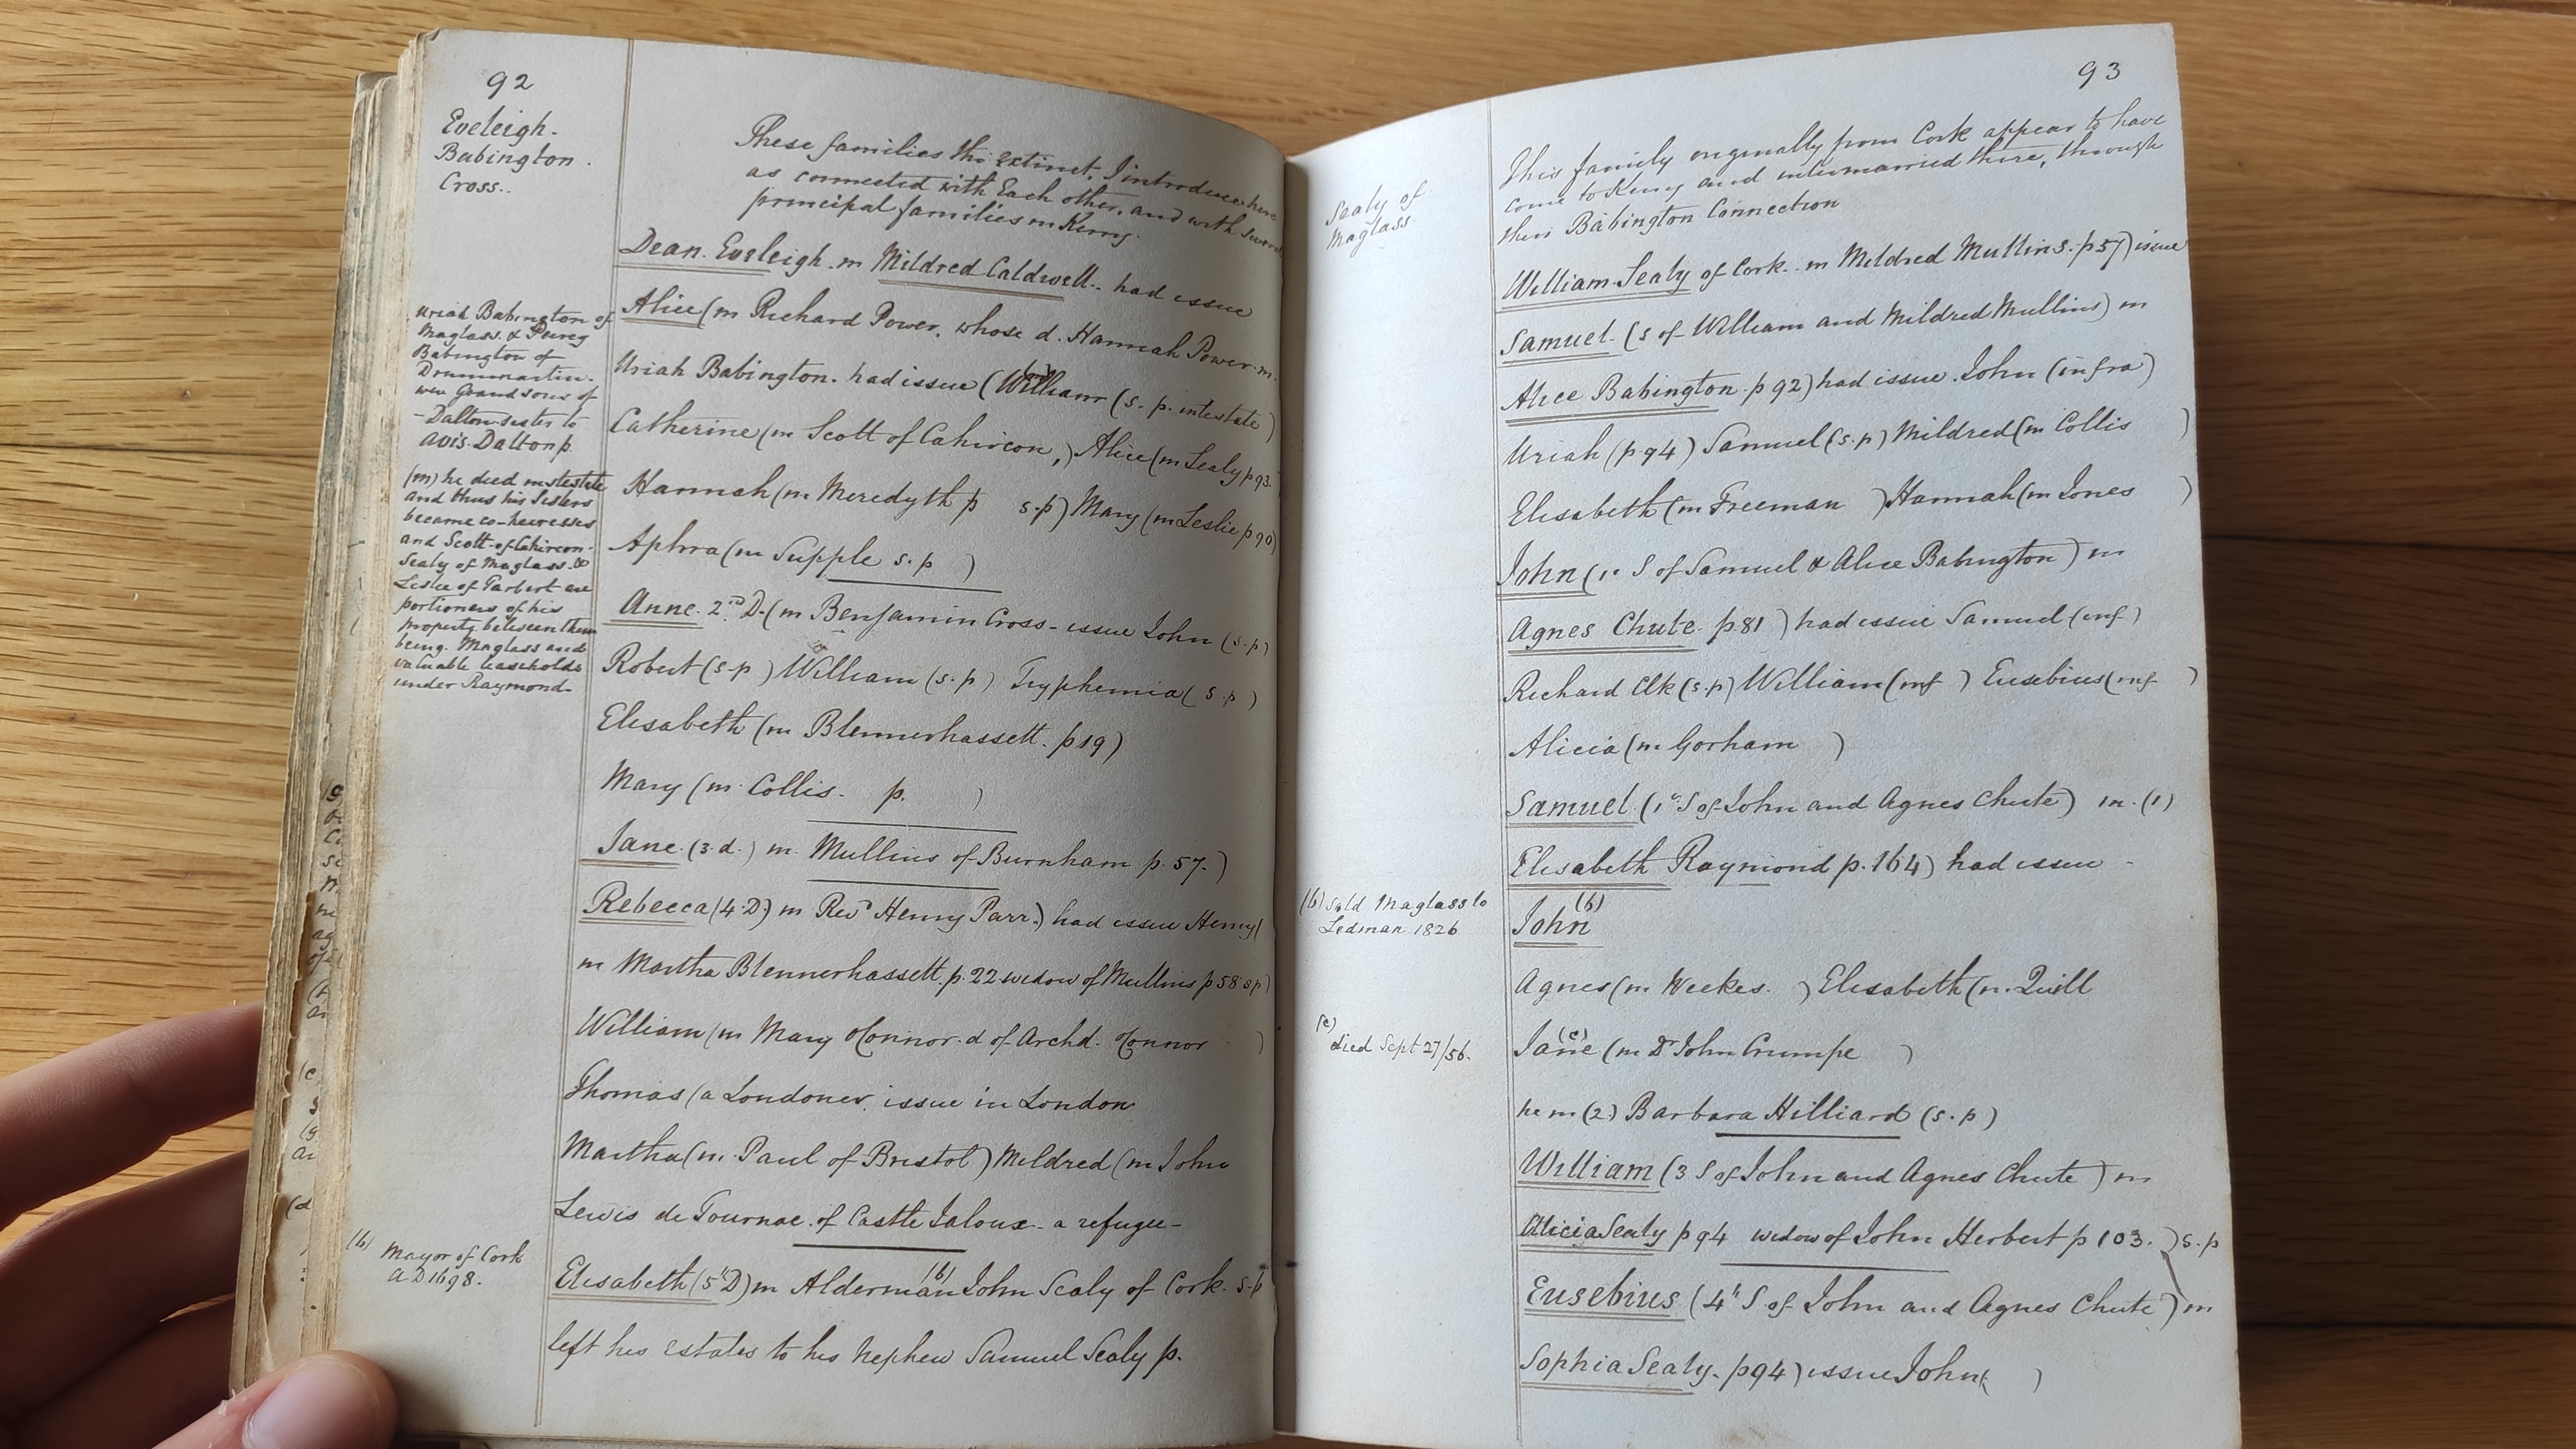 92
Eveleigh.
Babington.
Cross..
These families tho' extinct. I introduce here
as connected with Each other, and with several
principal families in Kerry.
Dean. Eveleigh. m Mildred Caldwell.. had issue
Alice (m Richard Power, whose d. Hannah Power. m.
Uriah Babington. had issue (William (s. p. intestate)
Catherine (m Scott of Cahircon,) Alice (m Sealy p 93.
Hannah (m. Meredyth p s.p) Mary (m Leslie p 90)
Aphra (m Supple s. p )
Anne. 2nd D. (m Benjamin Cross - issue John (s.p)
Robert (s-p) William (s. p) Tryphemia (s.p)
Elisabeth (m Blennerhassett. p 19)
Mary (m. Collis. p. )
Jane. (3. d.) m. Mullins of Burnham p. 57.)
Rebecca (4. D.) m Revd Henry Parr.) had issue Henry (
m Martha Blennerhassett. p. 22 widow of Mullins p 58 s p)
William (m Mary OConnor. d of Archd. OConnor )
Thomas (a Londoner. issue in London
Martha (m. Paul of Bristol) Mildred (m John
Lewis de Tournae. of Castle Jaloux - a refugee -
Elisabeth (5th D) m Alderman (b) John Sealy of Cork. s-p
left his estates to his Nephew Samuel Sealy p.
Uriah Babington of
Maglass. & Peircy
Babington of
Drummartin.
were Grand sons of
- Dalton sister to
Avis. Dalton p.
(m) he died intestate
and thus his Sisters
became co-heiresses
and Scott of Cahircon -
Sealy of Maglass. &
Leslie of Tarbert are
portioners of his
property between them
being. Maglass and
valuable leaseholds
under Raymond -
(b) Mayor of Cork
AD 1698.
93
Sealy of
Maglass
This family originally from Cork appear to have
come to Kerry and intermarried there, through
their Babington Connection
William. Sealy of Cork.. m Mildred Mullins. p 57) issue
Samuel. (s of William and Mildred Mullins) m
Alice Babington. p 92) had issue. John (infra)
Uriah (p 94) Samuel (s. p) Mildred (m Collis )
Elisabeth (m Freeman ) Hannah (m Jones )
John (1. S of Samuel & Alice Babington) m
Agnes Chute. p. 81) had issue Samuel (inf)
Richard Clk (s.p) William (inf ) Eusebius (inf )
Alicia (m Gorham )
Samuel (1st S of John and Agnes Chute) m. (1)
Elisabeth Raymond p. 164) had issue -
John (b)
Agnes (m. Weekes. ) Elisabeth (m. Quill
Jane (c) (m Dr John Crumpe )
he m (2) Barbara Hilliard (s. p)
William (3 S of John and Agnes Chute) m
Alicia Sealy p 94 widow of John Herbert p 103. ) s. p
Eusebius (4th S of John and Agnes Chute) m
Sophia Sealy. p 94) issue John ( )
(b) Sold Maglass to
Ledman 1826
(c)
died Sept 27/56.